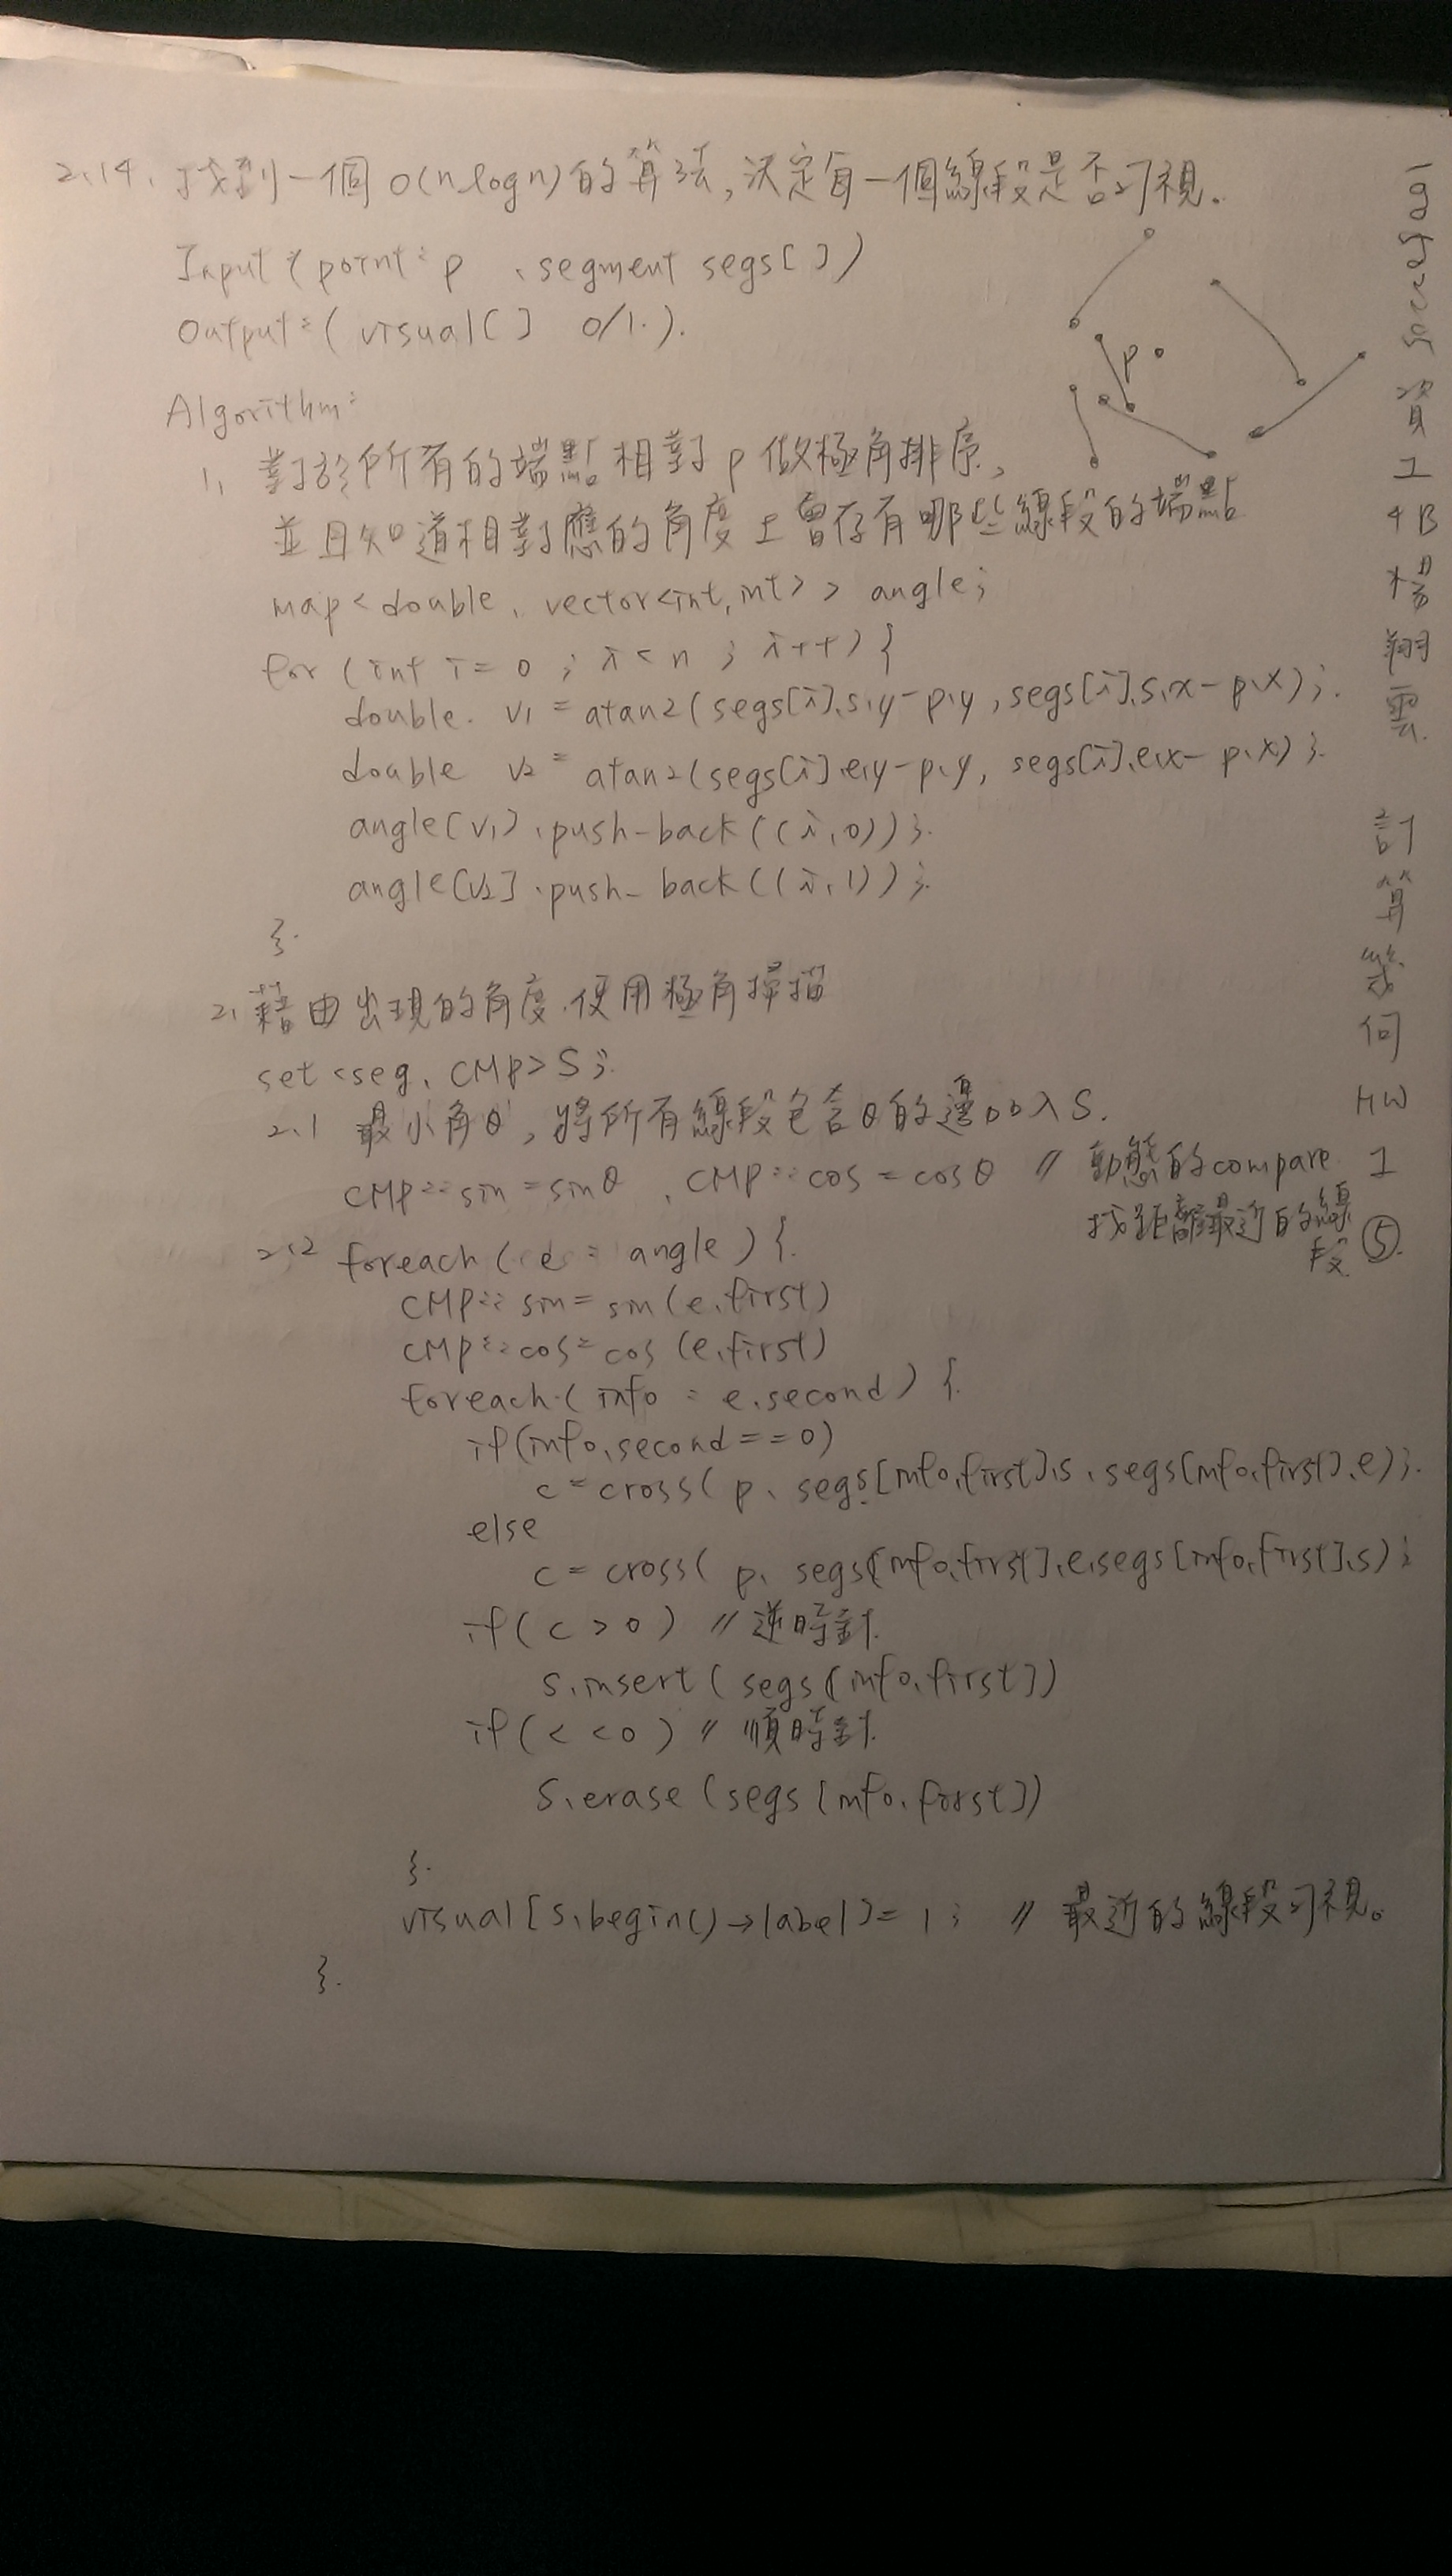 2.14. 找到一個 O(n log n) 的算法,決定每一個線段是否可視.
Input (point: p 、segment segs[])
Output:( visual[] 0/1.).
p
Algorithm:
1. 對於所有的端點相對 p 做極角排序,
並且知道相對應的角度上會存有哪些線段的端點
map<double, vector<int,int>> angle;
for (int i=0 ; i<n ; i++) {
double v1 = atan2(segs[i].s.y-p.y, segs[i].s.x-p.x);
double v2 = atan2(segs[i].e.y-p.y, segs[i].e.x-p.x);
angle[v1].push-back((i,0));
angle[v2].push-back((i,1));
}.
2. 藉由出現的角度,使用極角掃描
set<seg, CMP> S;
2.1 最小角θ, 將所有線段包含θ的邊加入S.
CMP::sin = sinθ , CMP::cos = cosθ // 動態的compare
找距離最近的線
段
2.2 foreach (e : angle) {.
CMP::sin= sin(e.first)
CMP::cos= cos (e.first)
foreach (info : e.second) {.
if(info.second==0)
c=cross( p, segs[info.first].s, segs[info.first].e);
else
c=cross( p, segs[info.first].e,segs[info.first].s);
if( c > 0 ) // 逆時針.
S.insert( segs[info.first])
if( c <0 ) // 順時針.
S.erase (segs[info.first])
}.
visual[S.begin()→label]= 1; // 最近的線段可視。
}.
資工4B 楊翔雲
計算幾何 HW1
⑤.